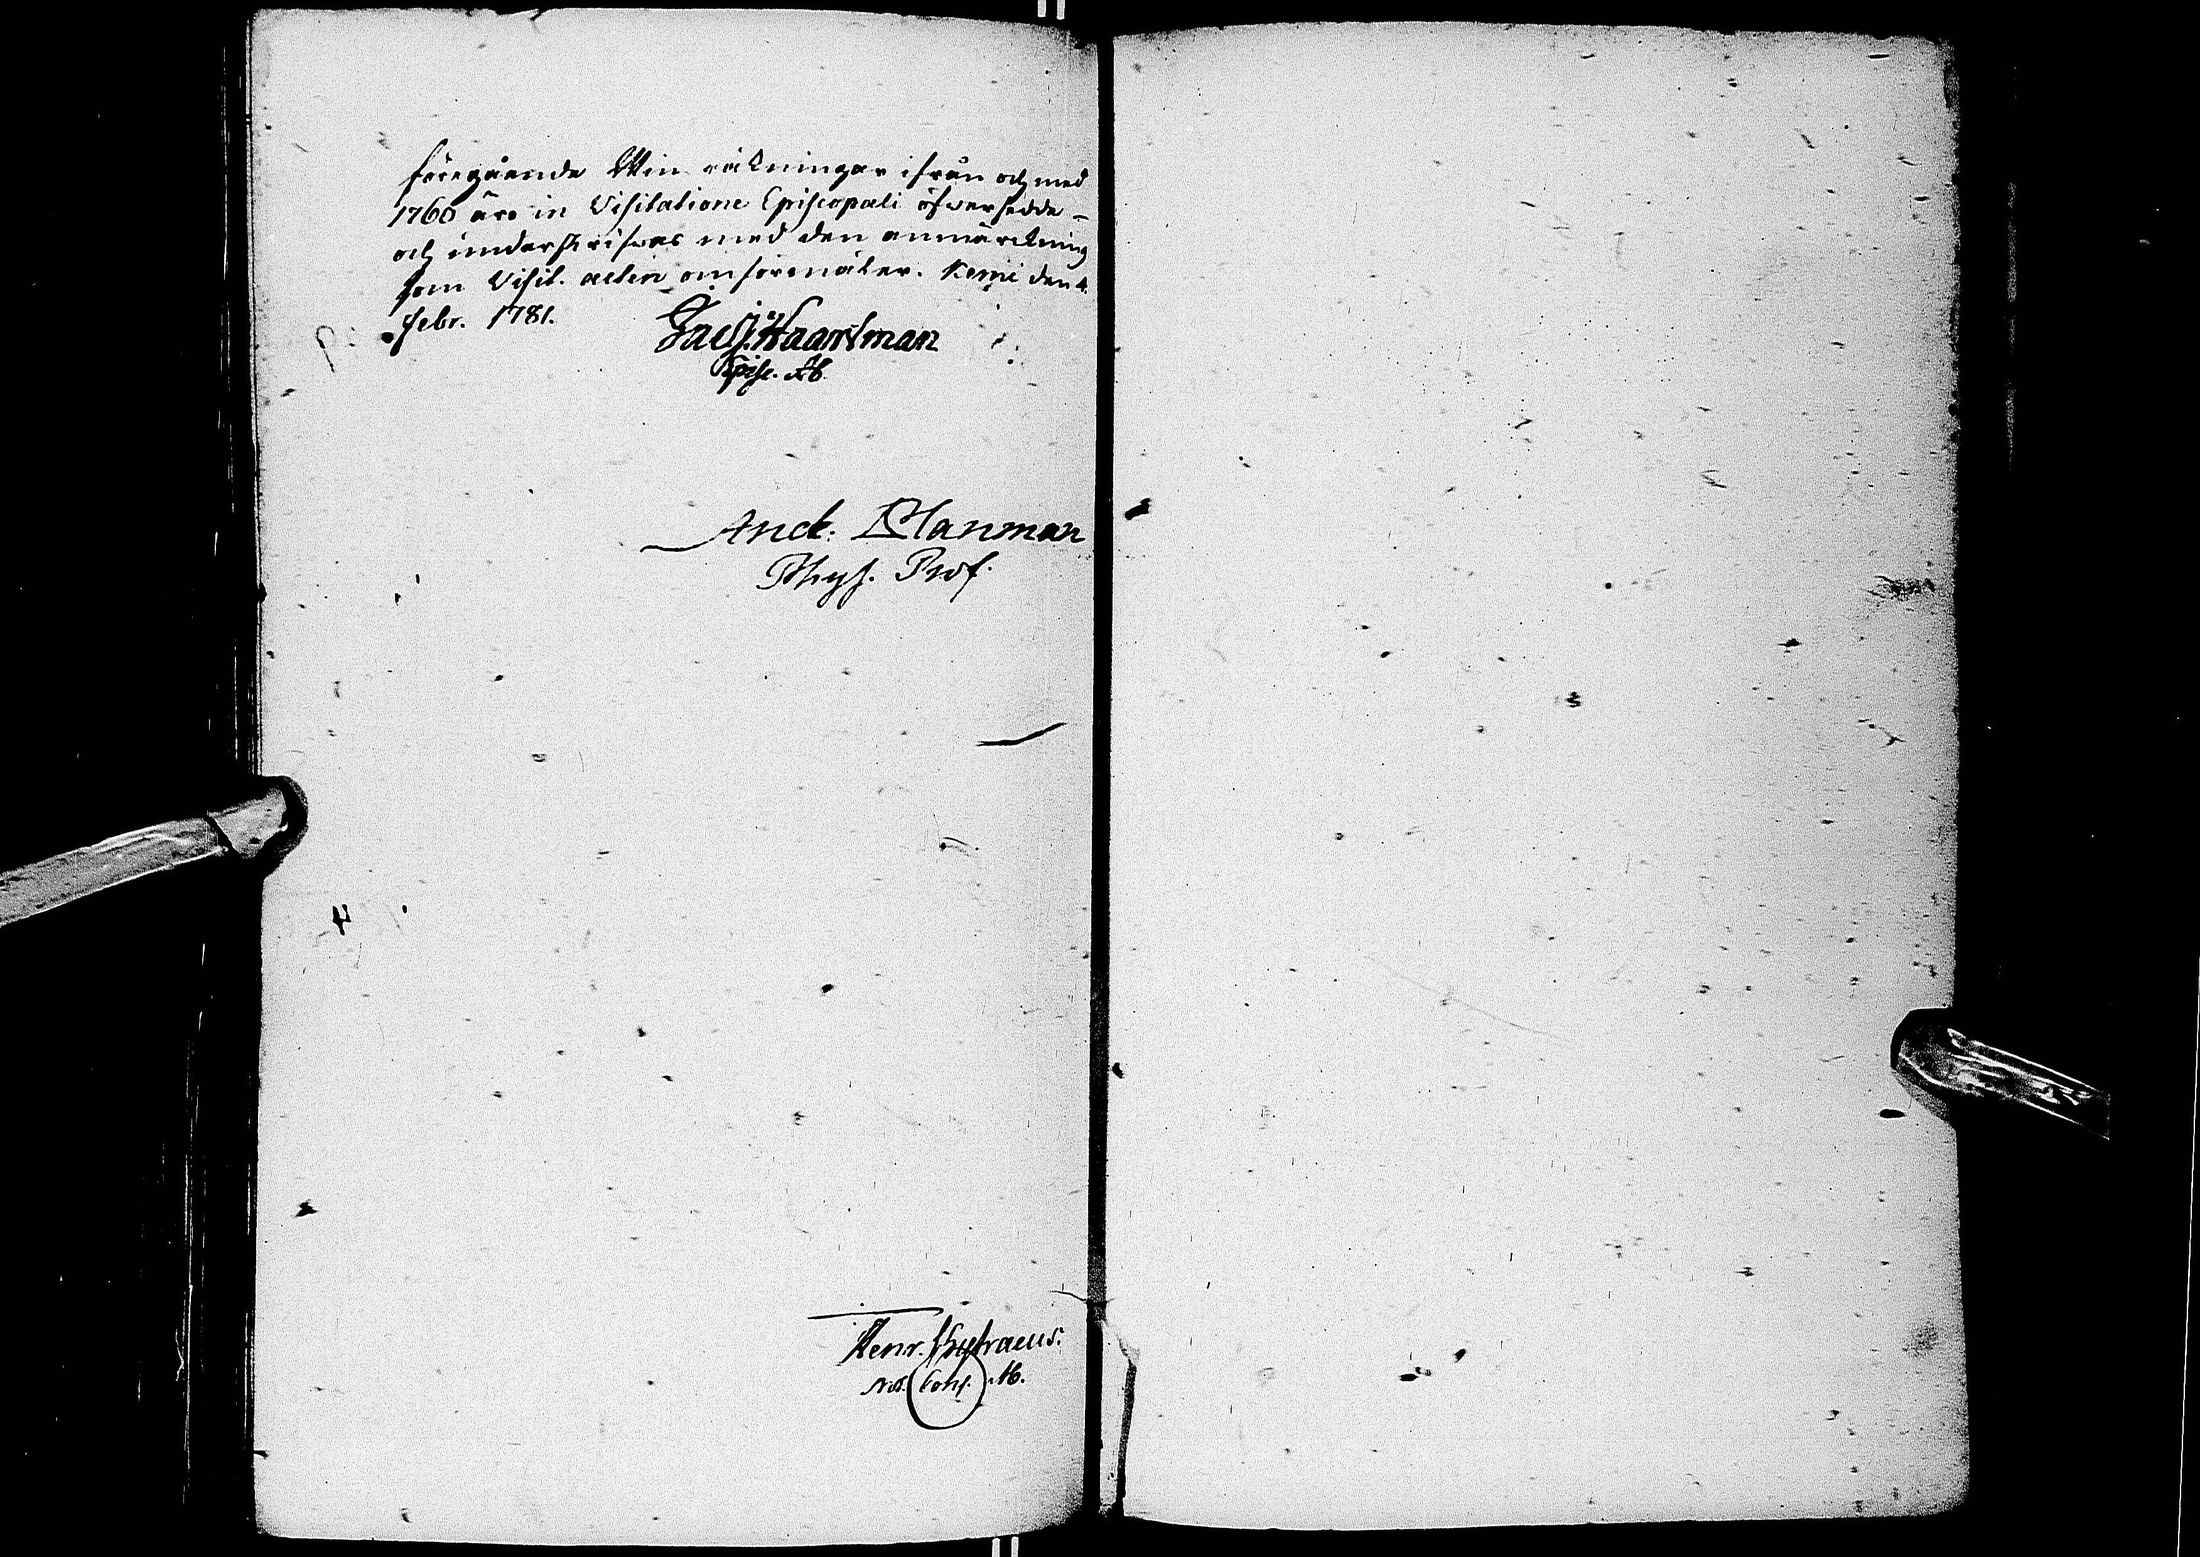 föregående Win räkningar ifrån och med
1760 äro in Visitatione Episcopali öfversedde
och underskrifwas med den anmärckning
som Visit. acten omförmäler. Kemi den 4.
Febr. 1781.
Jac. Haartman
Episc. Ab.
And. Planman
Phys. Prof.
Henr. Chytraeus.
Not. Cons. Ab.